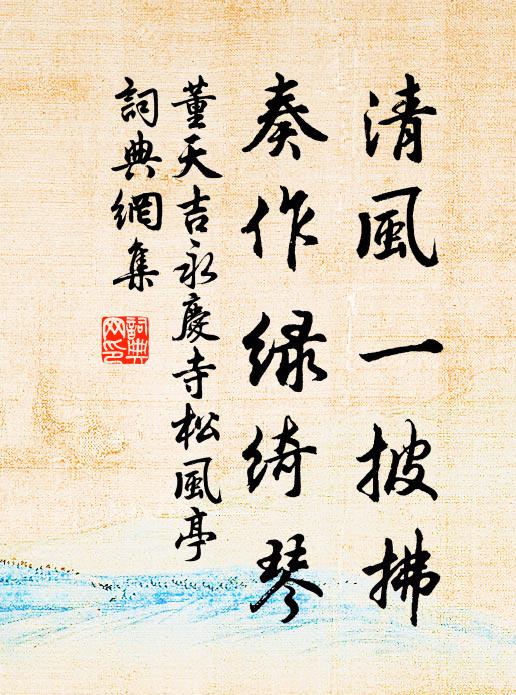 清風一披拂
奏作緑綺琴
董天吉永慶寺松風亭
詞典網集
詞典网印